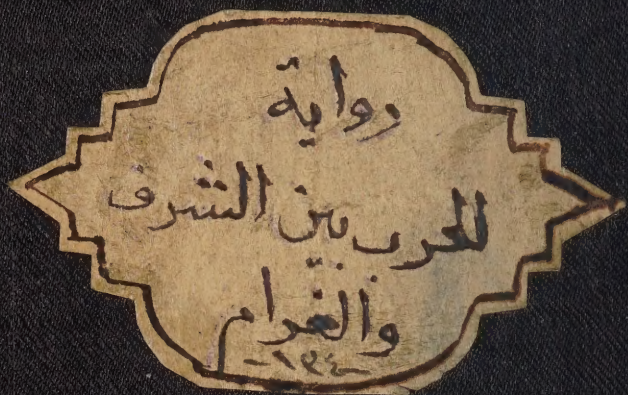 رواية
للحرب بين الشرف
والغرام
-١٣٤-